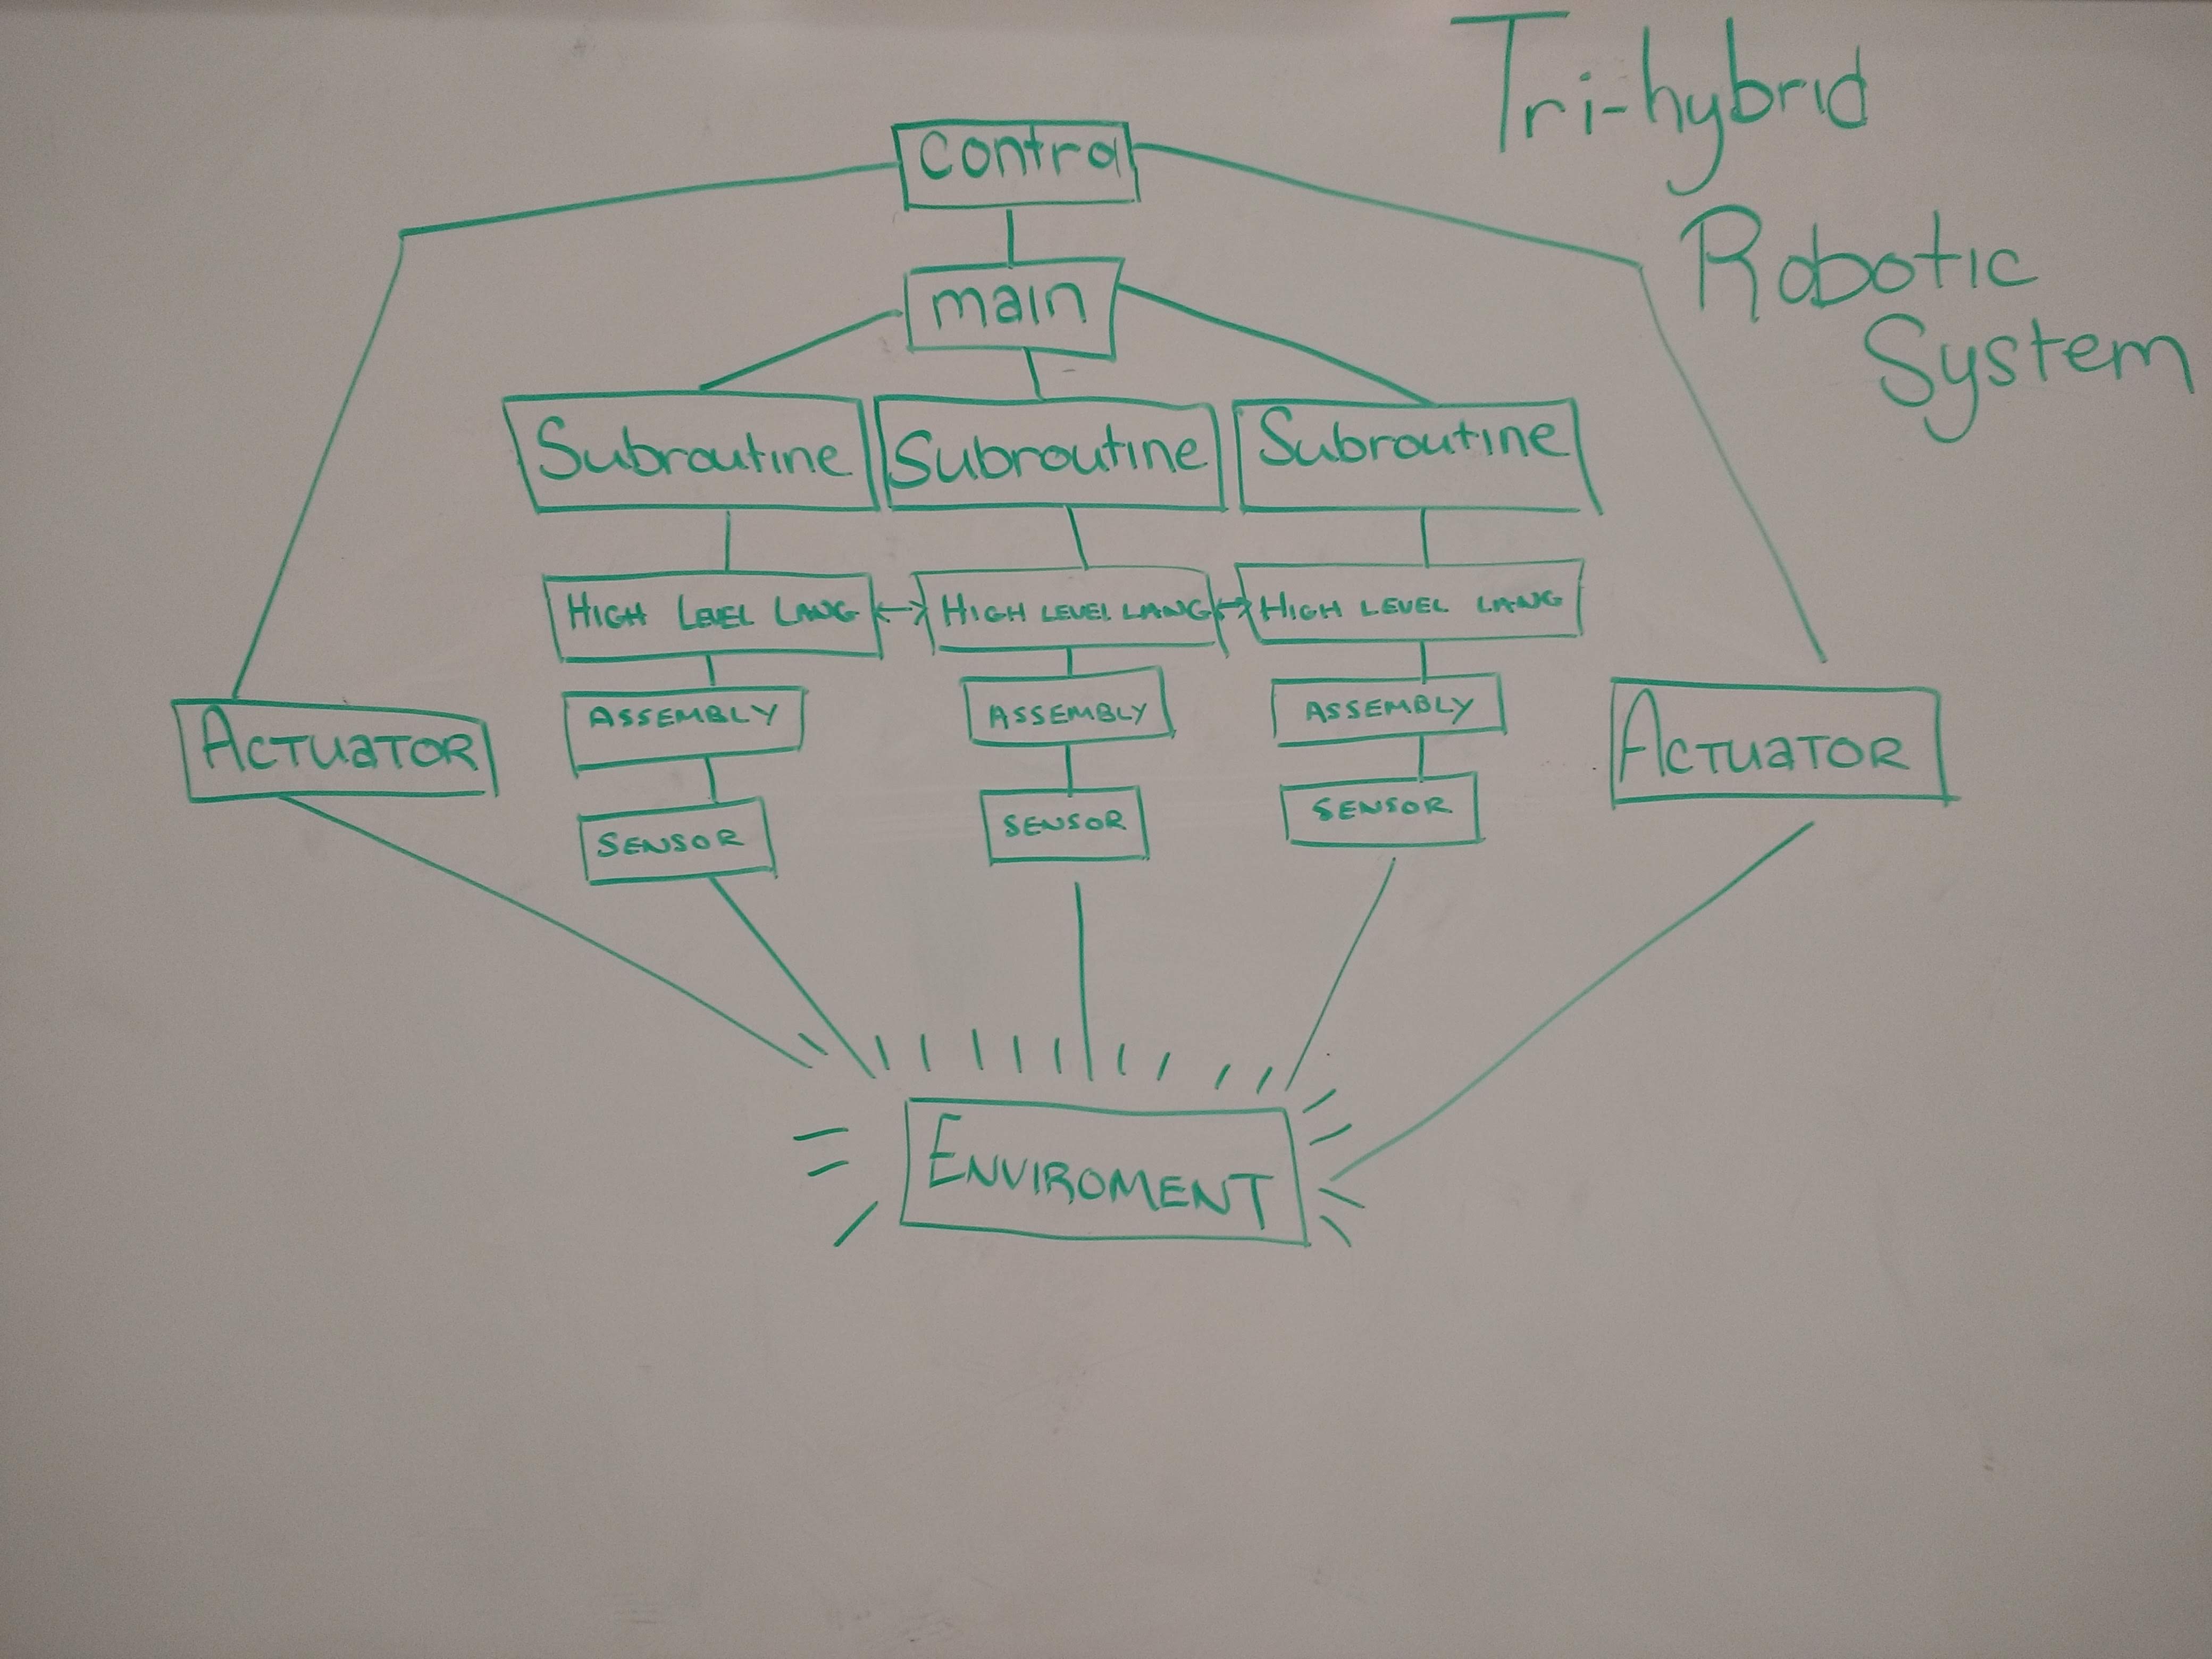 Tri-hybrid
Robotic
System
Control
main
Subroutine Subroutine Subroutine
HIGH LEVEL LANG HIGH LEVEL LANG HIGH LEVEL LANG
ACTUATOR ASSEMBLY ASSEMBLY ASSEMBLY ACTUATOR
SENSOR SENSOR SENSOR
ENVIROMENT